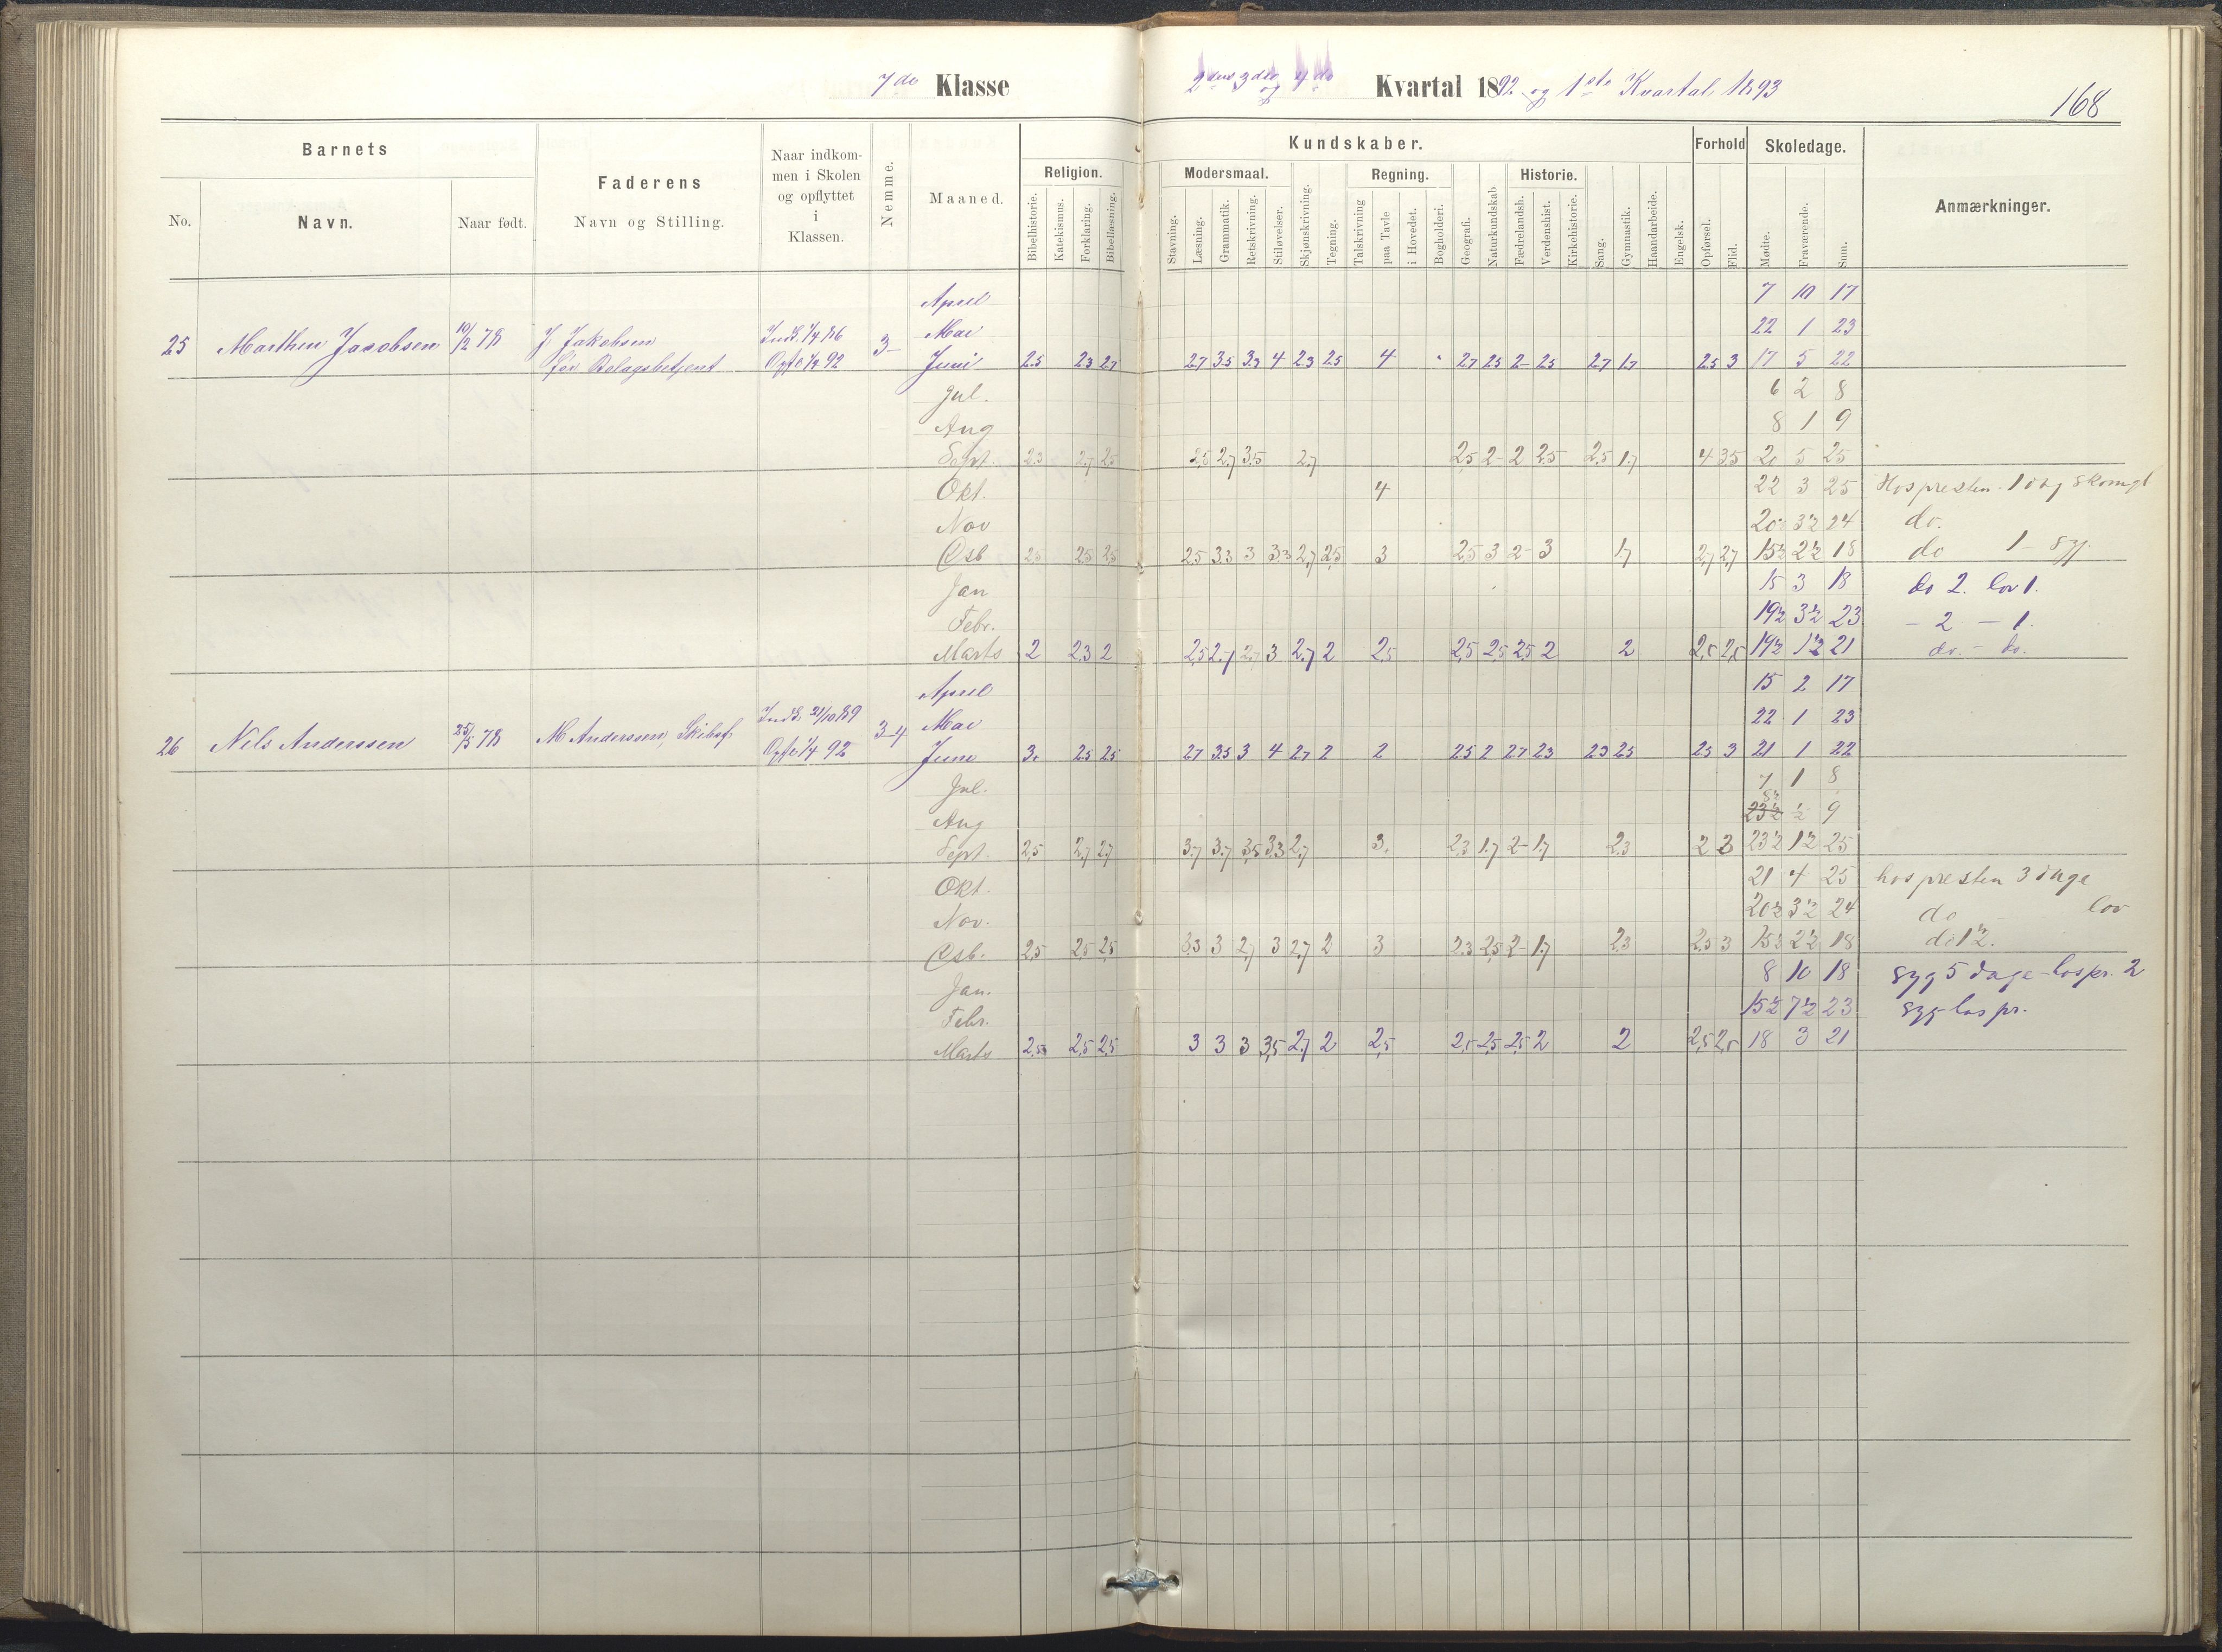 7de Klasse
2det 3die og 4de Kvartal 1892 og 1ste Kvartal 1893
168
Barnets
No.
Navn.
Naar født.
Faderens
Navn og Stilling.
Naar indkom-
men i Skolen
og opflyttet
i
Klassen.
Nemme.
Maaned.
Kundskaber.
Religion.
Bibelhistorie.
Katekismus.
Forklaring.
Bibellæsning.
Modersmaal.
Stavning.
Læsning.
Grammatik.
Retskrivning.
Stiløvelser.
Skjønskrivning.
Tegning.
Regning.
Talskrivning
paa Tavle
i Hovedet.
Bogholderi.
Geografi.
Naturkundskab.
Historie.
Fædrelandsh.
Verdenshist.
Kirkehistorie.
Sang.
Gymnastik.
Haandarbeide.
Engelsk.
Forhold
Opførsel.
Flid.
Skoledage.
Mødte.
Fraværende.
Sum.
Anmærkninger.
April 7 10 17
25 Marthin Jacobsen 10/2 78 J Jakobsen Inds. 1/4 86 3- Mai 22 1 23
Opfl 1/4 92 Juni 2.5 2.3 2.7 2.7 3.5 3.3 4 2.3 2.5 4 2.7 2.5 2- 2.5 2.7 1.7 2.5 3 17 5 22
Jul. 6 2 8
Aug 8 1 9
Sept. 2.3 2.7 2.5 2.5 2.7 3.5 2.7 2.5 2- 2 2.5 2.5 1.7 4 3.5 20 5 25
Okt. 4 22 3 25 Hos presten 1
Nov 20 3½ 24 do.
Dsb 2.5 2.5 2.5 2.5 3.3 3 3.3 2.7 2.5 3 2.5 3 2- 3 1.7 2.7 2.7 15½ 2½ 18 do 1 - syg.
Jan 15 3 18 do 2. lov 1.
Febr. 19½ 3½ 23 - 2 - 1.
Marts 2 2.3 2 2.5 2.7 2.7 3 2.7 2 2.5 2.5 2.5 2.5 2 2 2.5 2.5 19½ 1½ 21 do. - do.
April 15 2 17
26 Nils Anderssen 25/5 78 M Anderssen, Skibsf. Inds. 21/10 89 3-4 Mai 22 1 23
Opfl 1/4 92 Juni 3. 2.5 2.5 2.7 3.5 3 4 2.7 2 2 2.5 2 2.7 2.3 2.3 2.5 2.5 3 21 1 22
Jul. 7 1 8
Aug 23½ 8½ ½ 9
Sept. 2.5 2.7 2.7 3.7 3.7 3.5 3.3 2.7 3. 2.3 1.7 2- 1.7 2.3 2 3 23½ 1½ 25
Okt. 21 4 25 hos presten 3 dage
Nov. 20½ 3½ 24 do lov
Dsb. 2.5 2.5 2.5 3.3 3 2.7 3 2.7 2 3 2.3 2.5 2- 1.7 2.3 2.5 3 15½ 2½ 18 do 1½.
Jan. 8 10 18 syg 5 dage - hos pr. 2
Febr. 15½ 7½ 23 syg - hos pr.
Marts 2.5 2.5 2.5 3 3 3 3.5 2.7 2 2.5 2.5 2.5 2.5 2 2 2.5 2.5 18 3 21